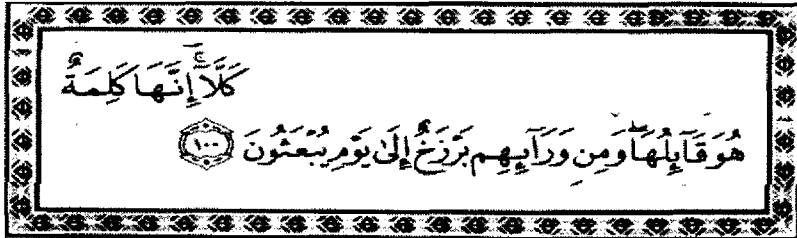 كَلَّآۚ إِنَّهَا كَلِمَةٌ
هُوَ قَآئِلُهَاۖ وَمِن وَرَآئِهِم بَرْزَخٌ إِلَىٰ يَوْمِ يُبْعَثُونَ ١٠٠